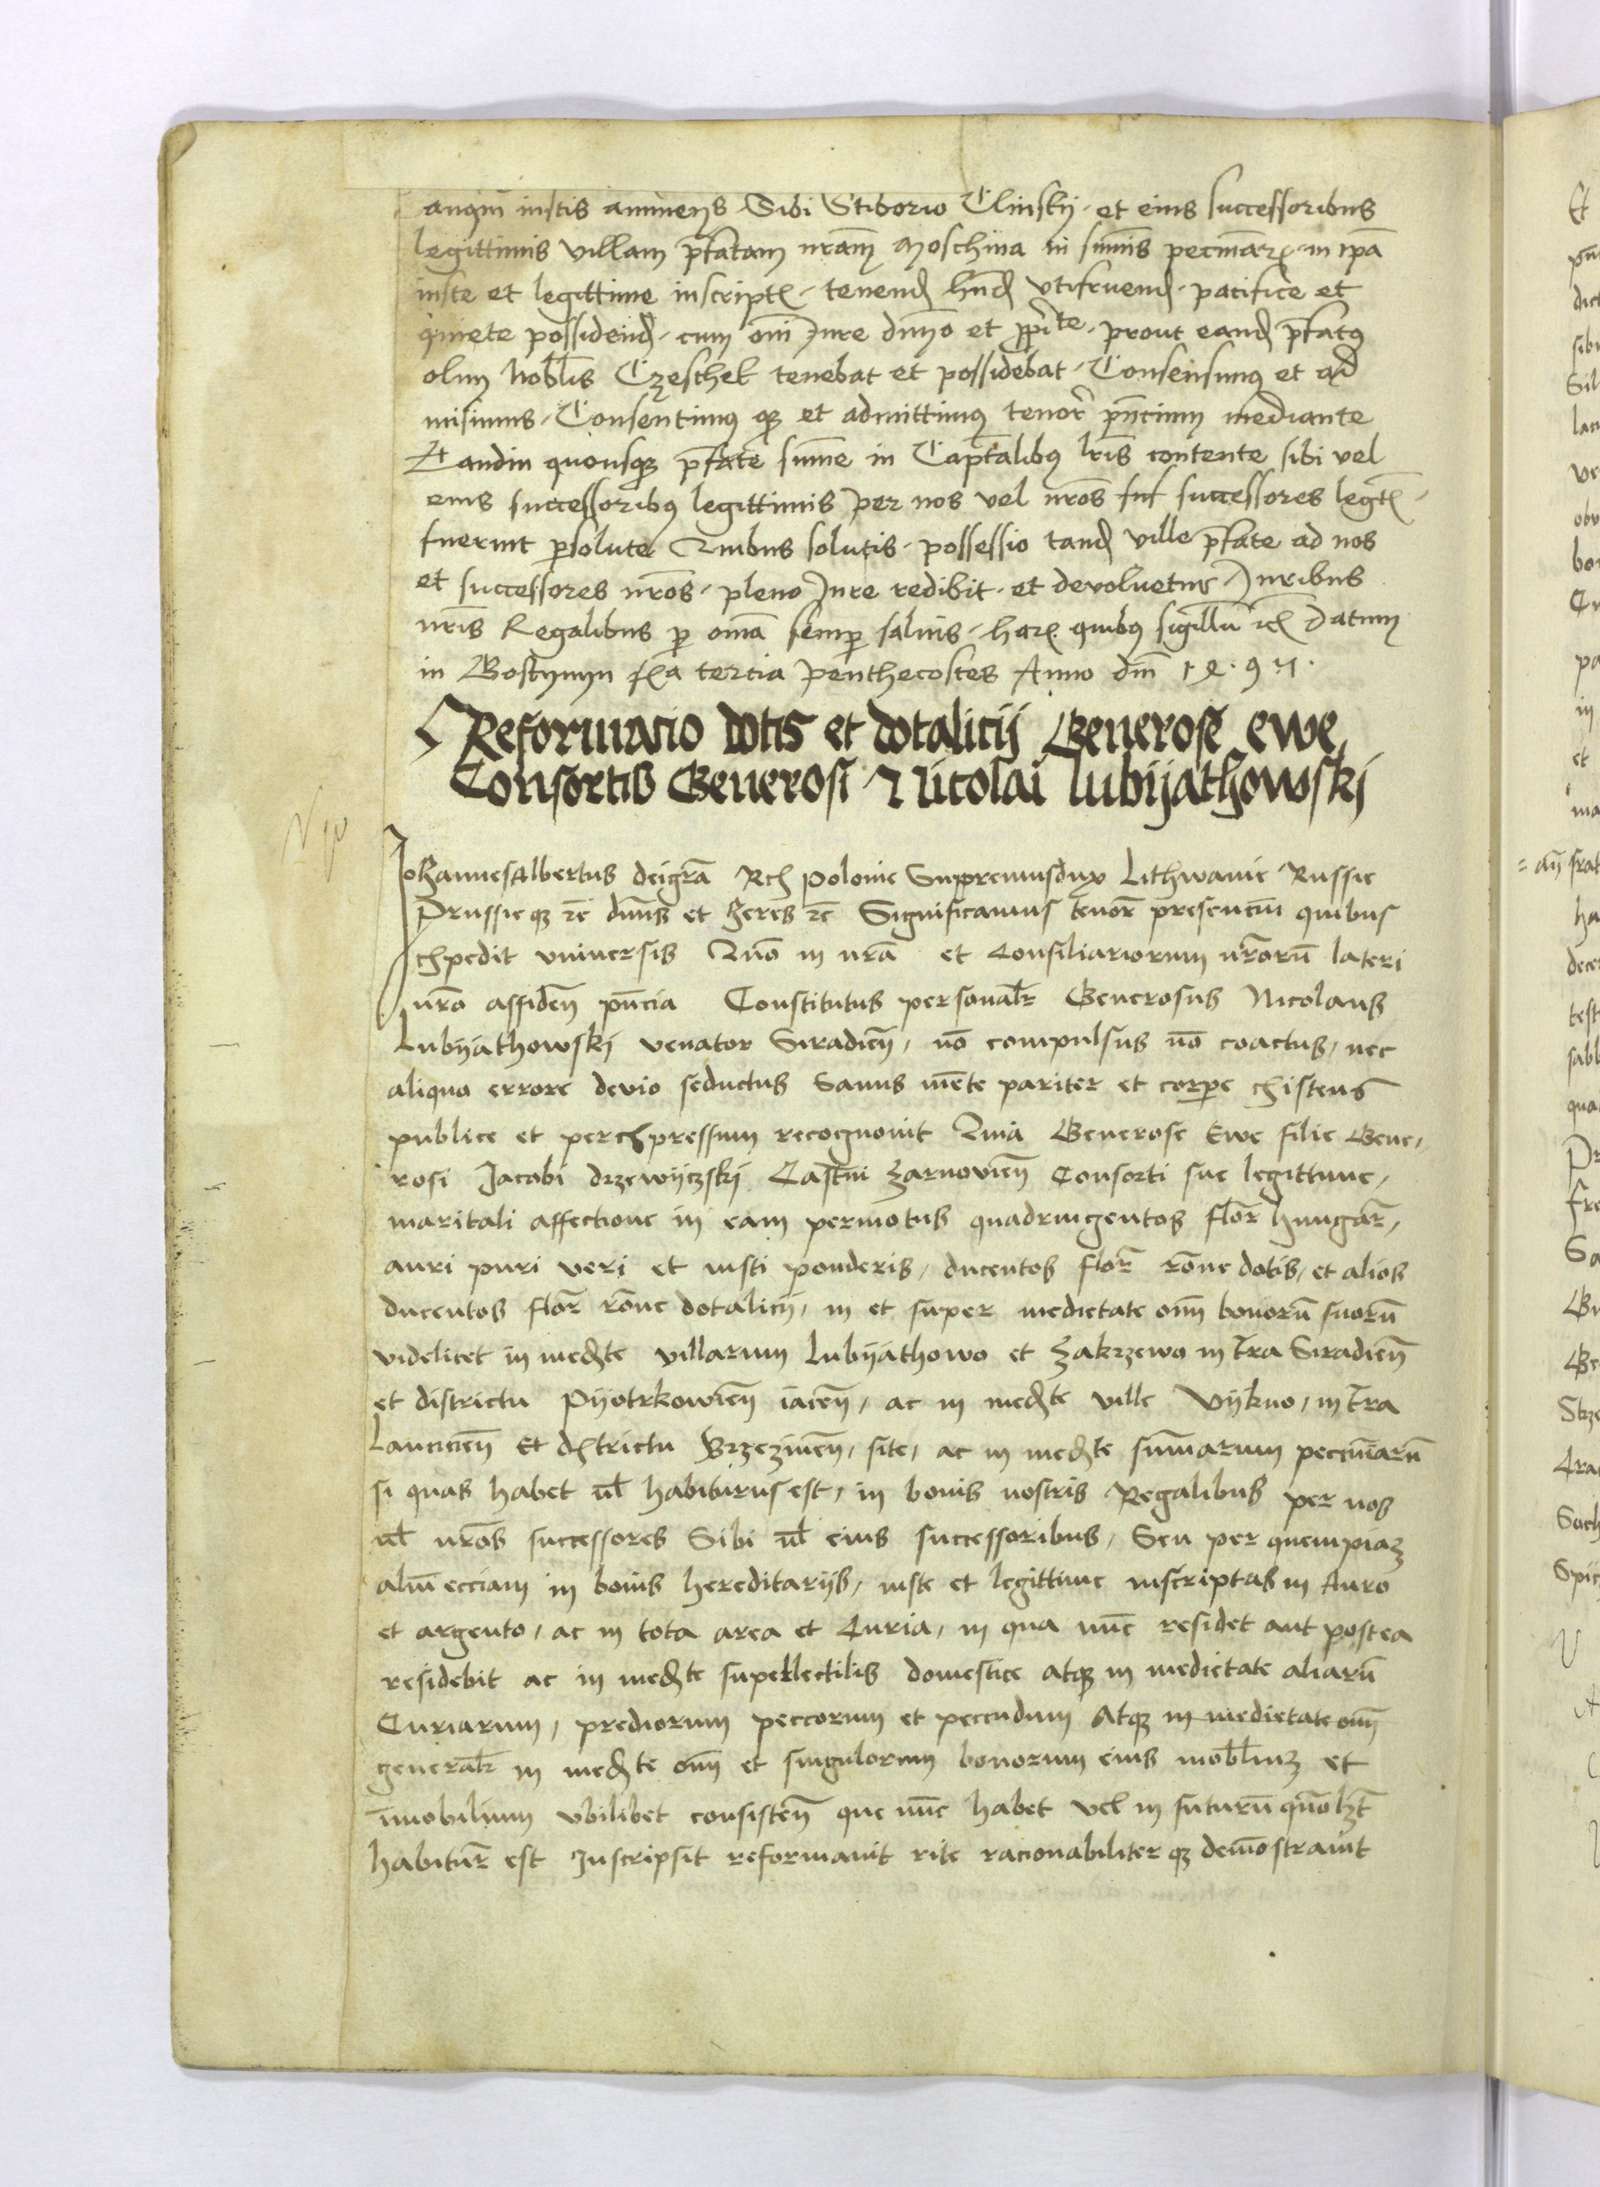 anq̃m iustis annuen̄s Sibi Stiborio Clinskij et eius successoribus
legittimis villam p̃fatam nrãm Moschina in sum̃is pecuniar̃ in ip̃a
iuste et legittime inscript̃ tenend̃ hñd̃ vtifruend̃ pacifice et
quiete possidend̃ cum om̃i Iure dm̃o et pp̃rite prout eand̃ p̃fatus
olim Nobĩlis Czeschel tenebat et possidebat Consensimus et ad
misimus Consentimus q̃ et admittimus tenor̃ p̃ncium mediante
Tamdiu quousq̃ p̃fate sum̃e in Capitalibus lr̃is contente sibi vel
eius successoribus legittimis per nos vel nr̃os successores legit̃
fuerint p̃solute Quibus solutis possessio tand̃ ville p̃fate ad nos
et successores nr̃os pleno Iure redibit et devoluetur Iuribus
nr̃is Regalibus p̃ om̃ia semp̃ saluis har̃ quibus sigillũ etc̃ Datum
in Gostynyn fr̃ia tercia Penthecostes Anno dm̃
Reformacio dotis et dotalicij Generose ewe
Consortis Generosi Nicolai lubijathowskj
Johannes Albertus dei gr̃a Rex Polonie Suppremus dux Lithwanie Russie
Prussieq̃ etc̃ dn̄s et heres etc̃ Significamus tenor̃ presenciũ quibus
expedit vniuersis Quo in nr̃a et Consiliariorum nr̃orũ lateri
nr̃o assiden̄ p̃ncia Constitutus personal̃r Generosus Nicolaus
Lubijathowskj venator Siradieñ, nõ compulsus nõ coactus, nec
aliquo errore deuio seductus Sanus mẽte pariter et corp̃e existens
publice et per expressum recognouit Quia Generose Ewe filie Gene,
rosi Jacobi drzewijczskj Castlñi Zarnouieñ Consorti sue legittime,
maritali affectione in eam permotus quadringentos flor̃ hungar̃,
auri puri veri et iusti ponderis, ducentos flor̃ rõne dotis, et alios
ducentos flor̃ rõne dotalicij, in et super medietate om̃ bonorũ suorũ
videlicet in med̃te villarum Lubijathowo et Zakrzewo in t̃ra Siradieñ
et districtu Pijotrkowieñ iaceñ, ac in med̃te ville Vijkno, in t̃ra
Lancicieñ Et districtu Brzezineñ, site, ac in med̃te sum̃arum pecuniarũ
si quas habet ul̃ habiturus est, in bonis nostris Regalibus per nos
ul̃ nr̃os successores Sibi ul̃ eius successoribus, Seu per quempiam
aliũ ecciam in bonis hereditarijs, iuste et legittime inscriptas in Auro
et argento, ac in tota area et Curia, in qua nũc residet aut postea
residebit ac in med̃te suppellectilis domestice atq̃ in medietate aliarũ
Curiarum, prediorum peccorum et peccudum Atq̃ in medietate om̃
general̃r in med̃te om̃ et singulorum bonorum eius mobl̃ium et
im̃obilium vbilibet consisteñ que nũc habet vel in futurũ quõlz̃t
habitur̃ est Inscripsit reformauit rite racionabiliterq̃ demõstrauit